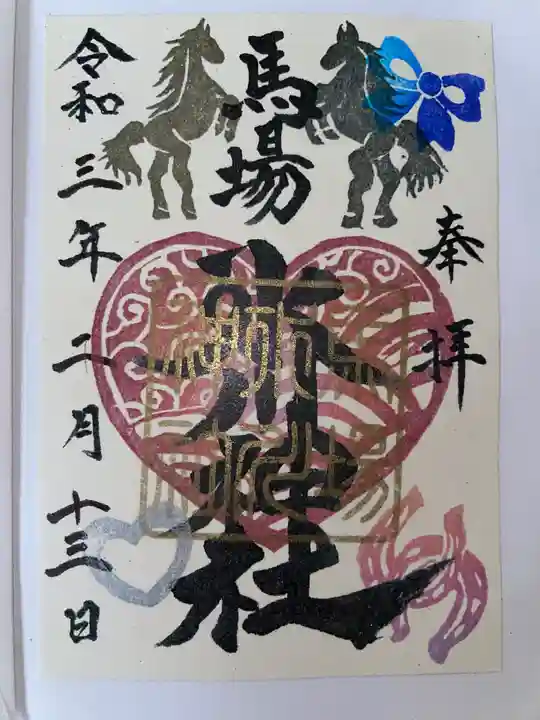 奉拝
馬場
氷川神社
令和三年二月十三日